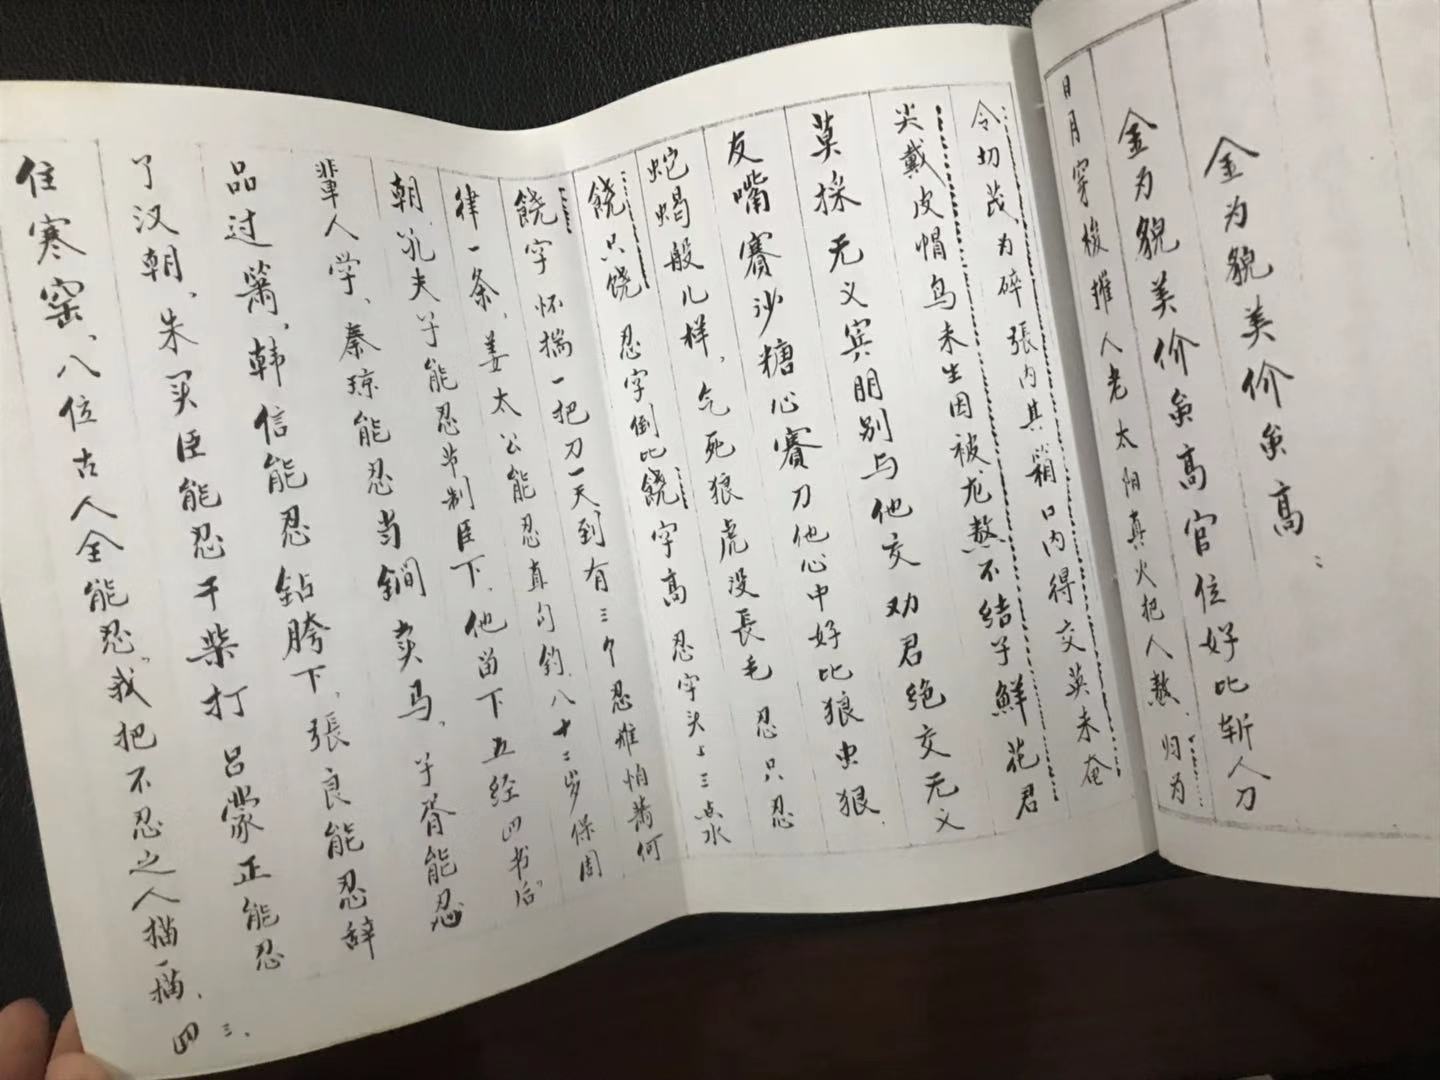 金为貌美价虽高
金为貌美价虽高官位好比斩人刀
日月穿梭推人老太阳真火把人熬、归为
令切莫、为碎張内其箱口内得交英未奄
尖戴皮帽鸟未生因被龙熬不结子鲜花君
莫採无义宾朋别与他交劝君绝交无义
友嘴赛沙糖心赛刀他心中好比狼虫狠
蛇蝎般儿样，气死狼虎没長毛忍只忍
饶只饶忍字倒比饶字高忍字头上三点水
饶字怀揣一把刀一天到有三个忍难怕萧何
律一条，姜太公能忍直勾钓、八十二岁保周
朝、孔夫子能忍书制臣下，他留下五经四书后
辈人学、秦琼能忍当锏卖马、子胥能忍
品过箫，韩信能忍鉆胯下，張良能忍辞
了汉朝、朱买臣能忍干柴打吕蒙正能忍
住寒窑、八位古人全能忍，我把不忍之人描一描、
三、
四